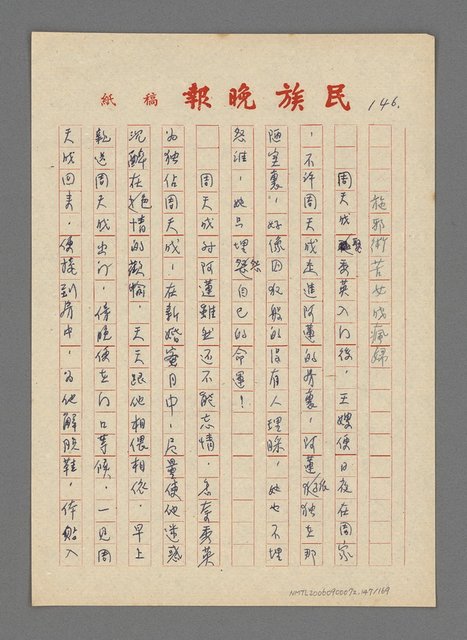 民族晚報 稿紙
146.
施邪術苦女成瘋婦
周天成娶秀英入門後，王嫂便日夜在周家
，不許周天成走進阿蓮的房裏，阿蓮孤獨在那
陋室裏，好像囚犯般的沒有人理睬，她也不埋
怨誰，她只埋怨自己的命運！
周天成對阿蓮雖然還不能忘情，怎奈秀英
為獨佔周天成，在新婚蜜月中，尽量使他迷惑
沉醉在色情的歡愉，天天跟他相偎相依，早上
乾送周天成出門，傍晚便在門口等候，一見周
天成回來，便接到房中，為他解脫鞋，体貼入
NMTL20060900072.147/169